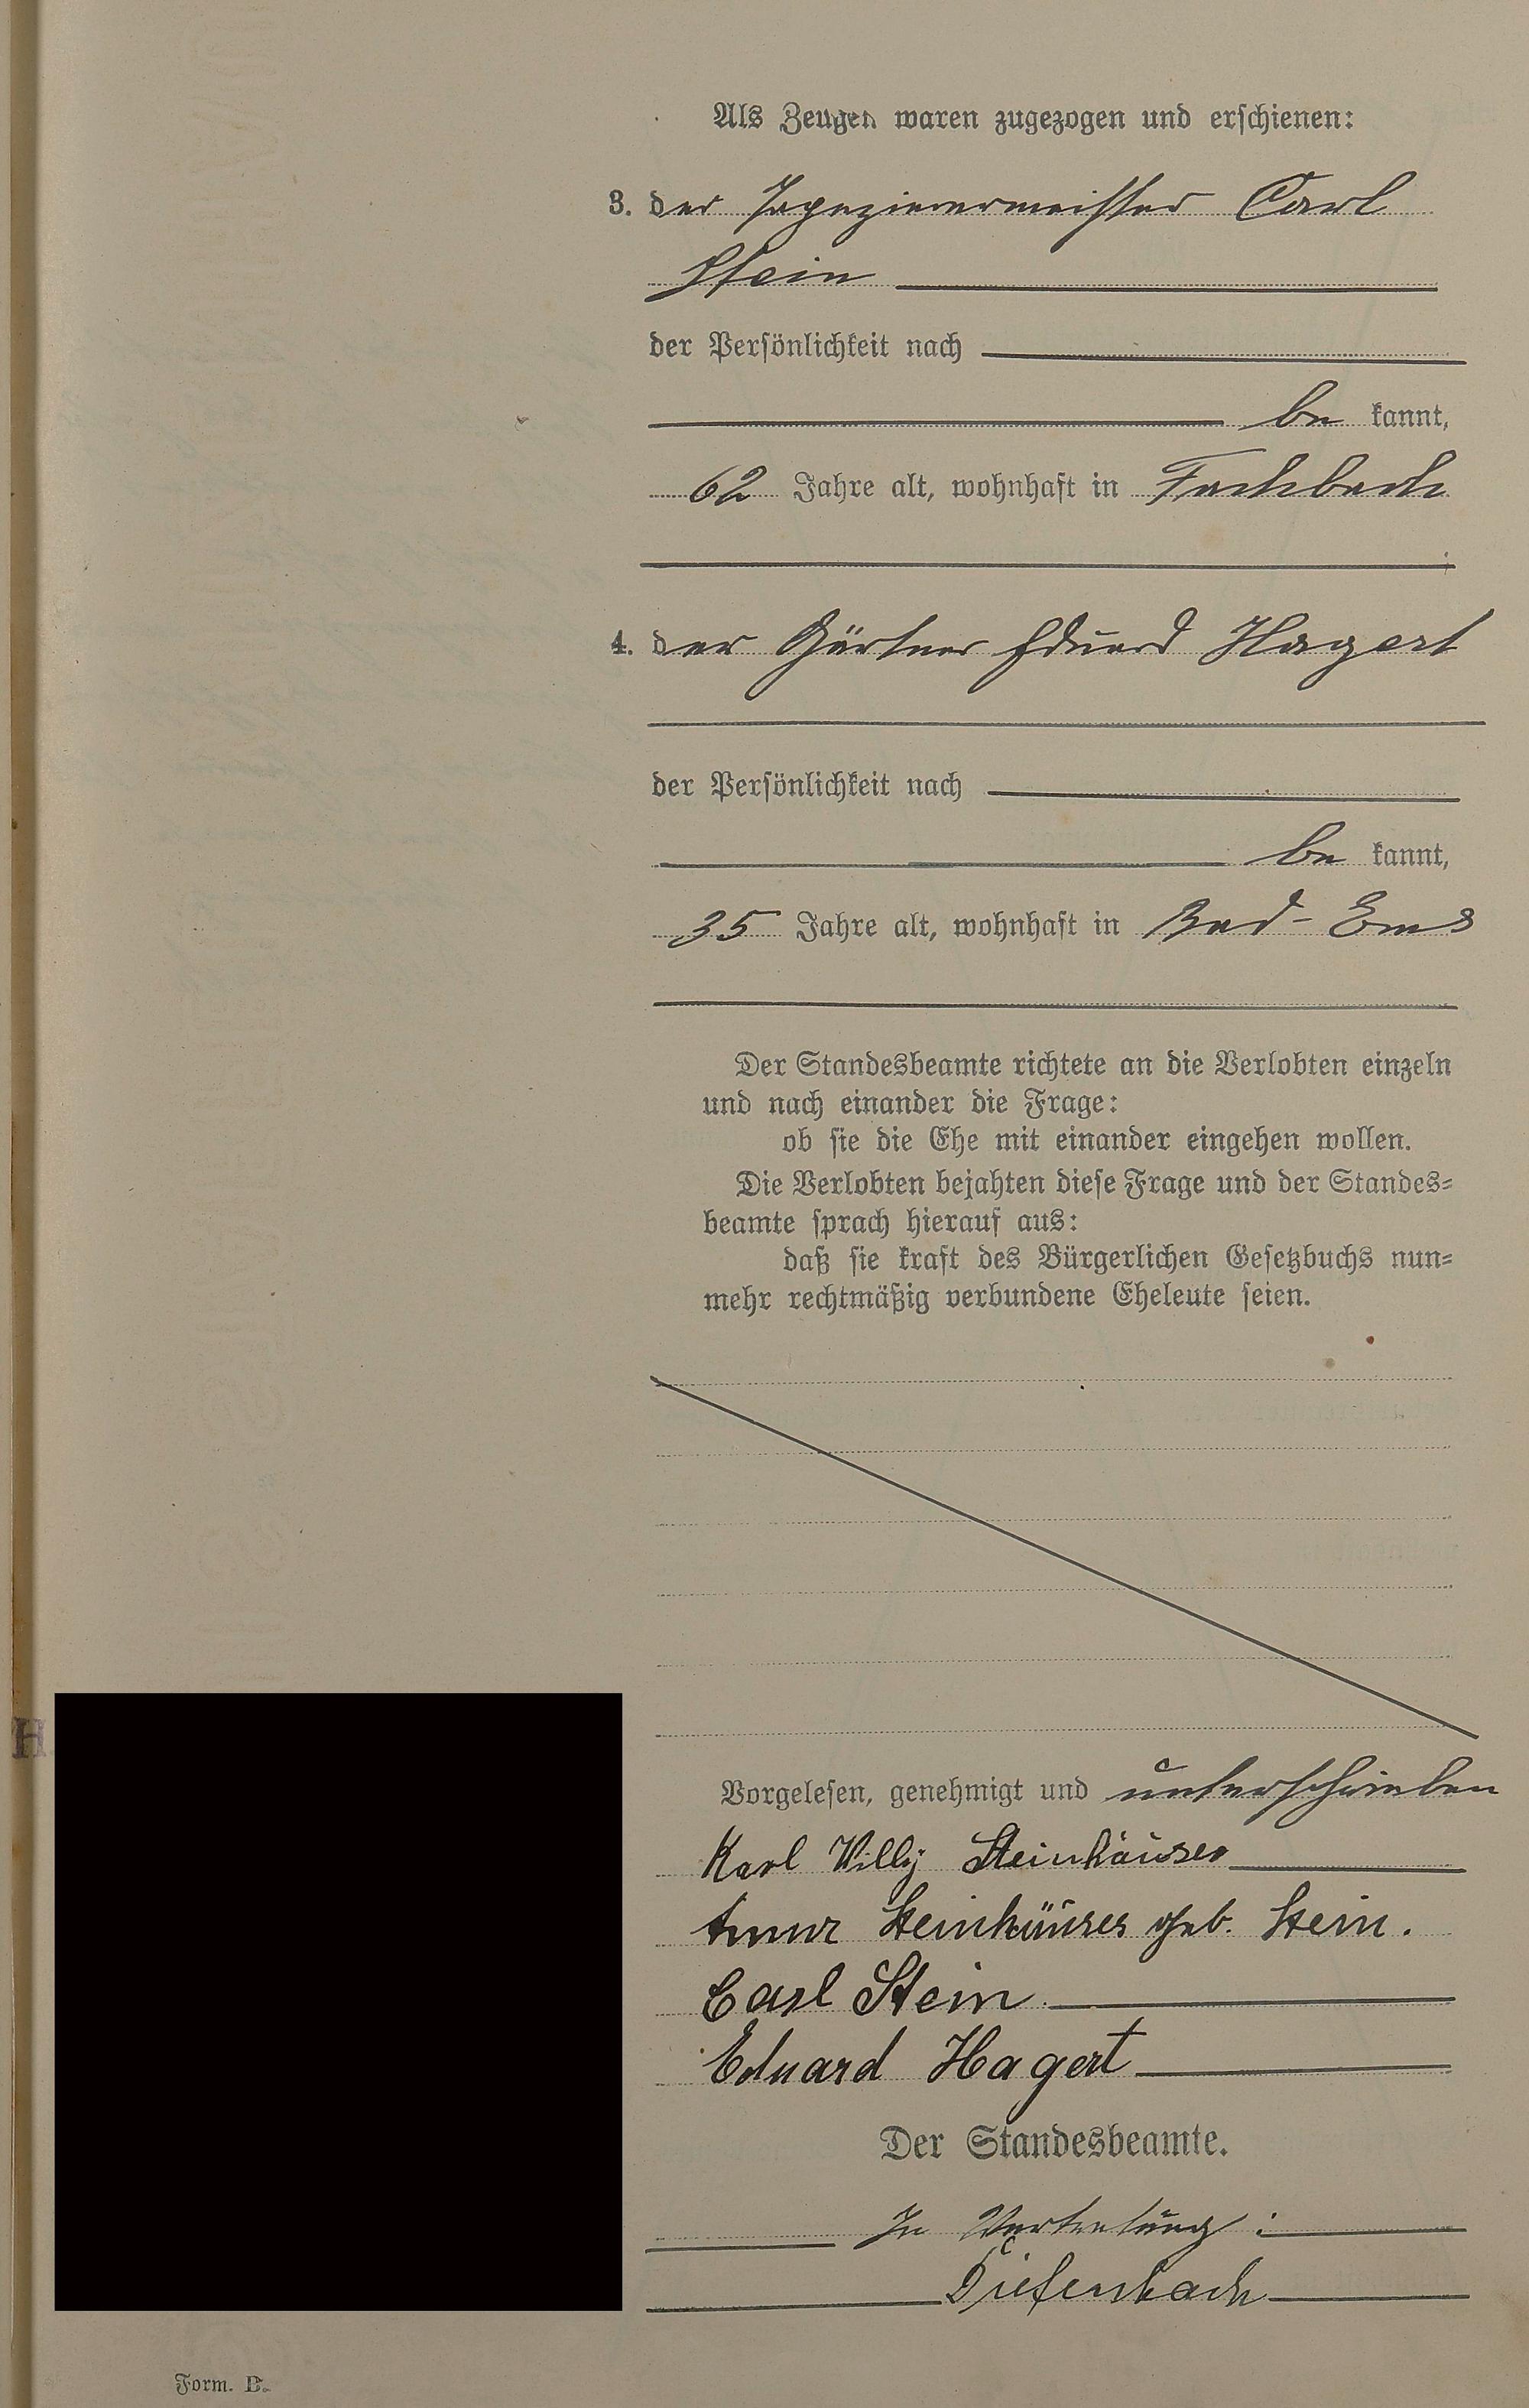 Als Zeugen waren zugezogen und erschienen:
3. der Tapezierermeister Carl
Stein
der Persönlichkeit nach
be kannt,
62 Jahre alt, wohnhaft in Fachbach
;
4. der Gärtner Eduard Hagert
der Persönlichkeit nach
be kannt,
35 Jahre alt, wohnhaft in Bad-Ems
Der Standesbeamte richtete an die Verlobten einzeln
und nach einander die Frage:
ob sie die Ehe mit einander eingehen wollen.
Die Verlobten bejahten diese Frage und der Standes=
beamte sprach hierauf aus:
daß sie kraft des Bürgerlichen Gesetzbuchs nun=
mehr rechtmäßig verbundene Eheleute seien.
H
Vorgelesen, genehmigt und unterschrieben
Karl Willy Steinhäuser
Anna Steinhäuser geb. Stein.
Carl Stein.
Eduard Hagert
Der Standesbeamte.
In Vertretung:
Diefenbach
Form. B.